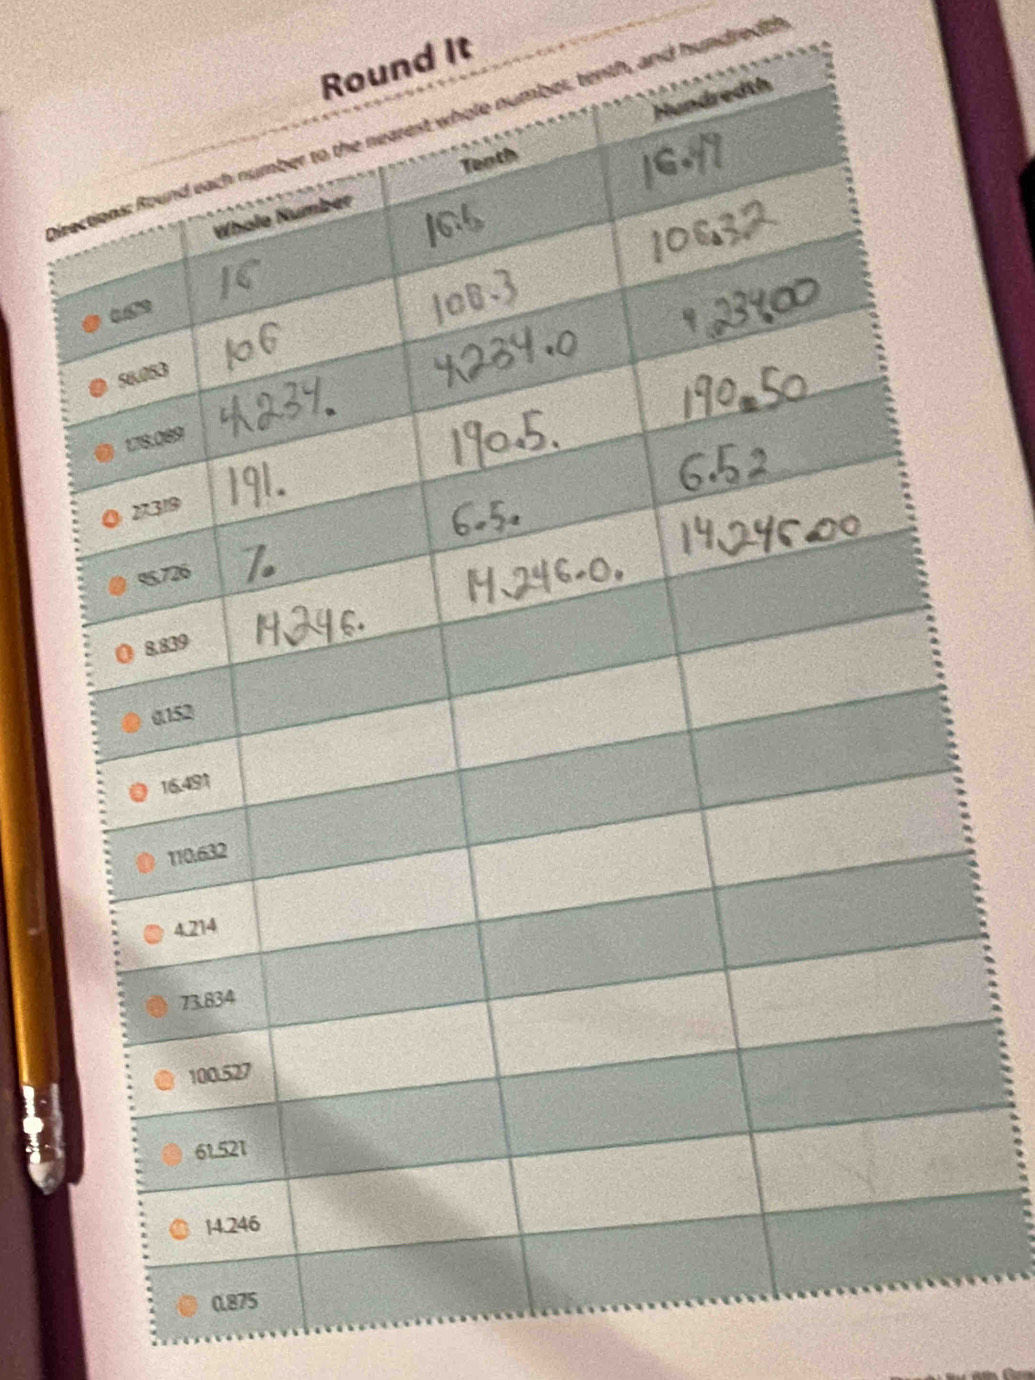 Round It
Directions: Round each number to the nearest whole number, tenth, and hundredth.
Whole Number Tenth Hundredth
16 16.5 16.49
56.053 106 108.3 106.32
178.089 4,234. 4,234.0 4,234.00
4 27.319 191. 190.5. 190.50
95.726 7. 6.5. 6.52
8.839 14,246. 14,246.0. 14,246.00
0.152
16.491
110.632
4.214
73.834
100.527
61.521
14.246
0.875